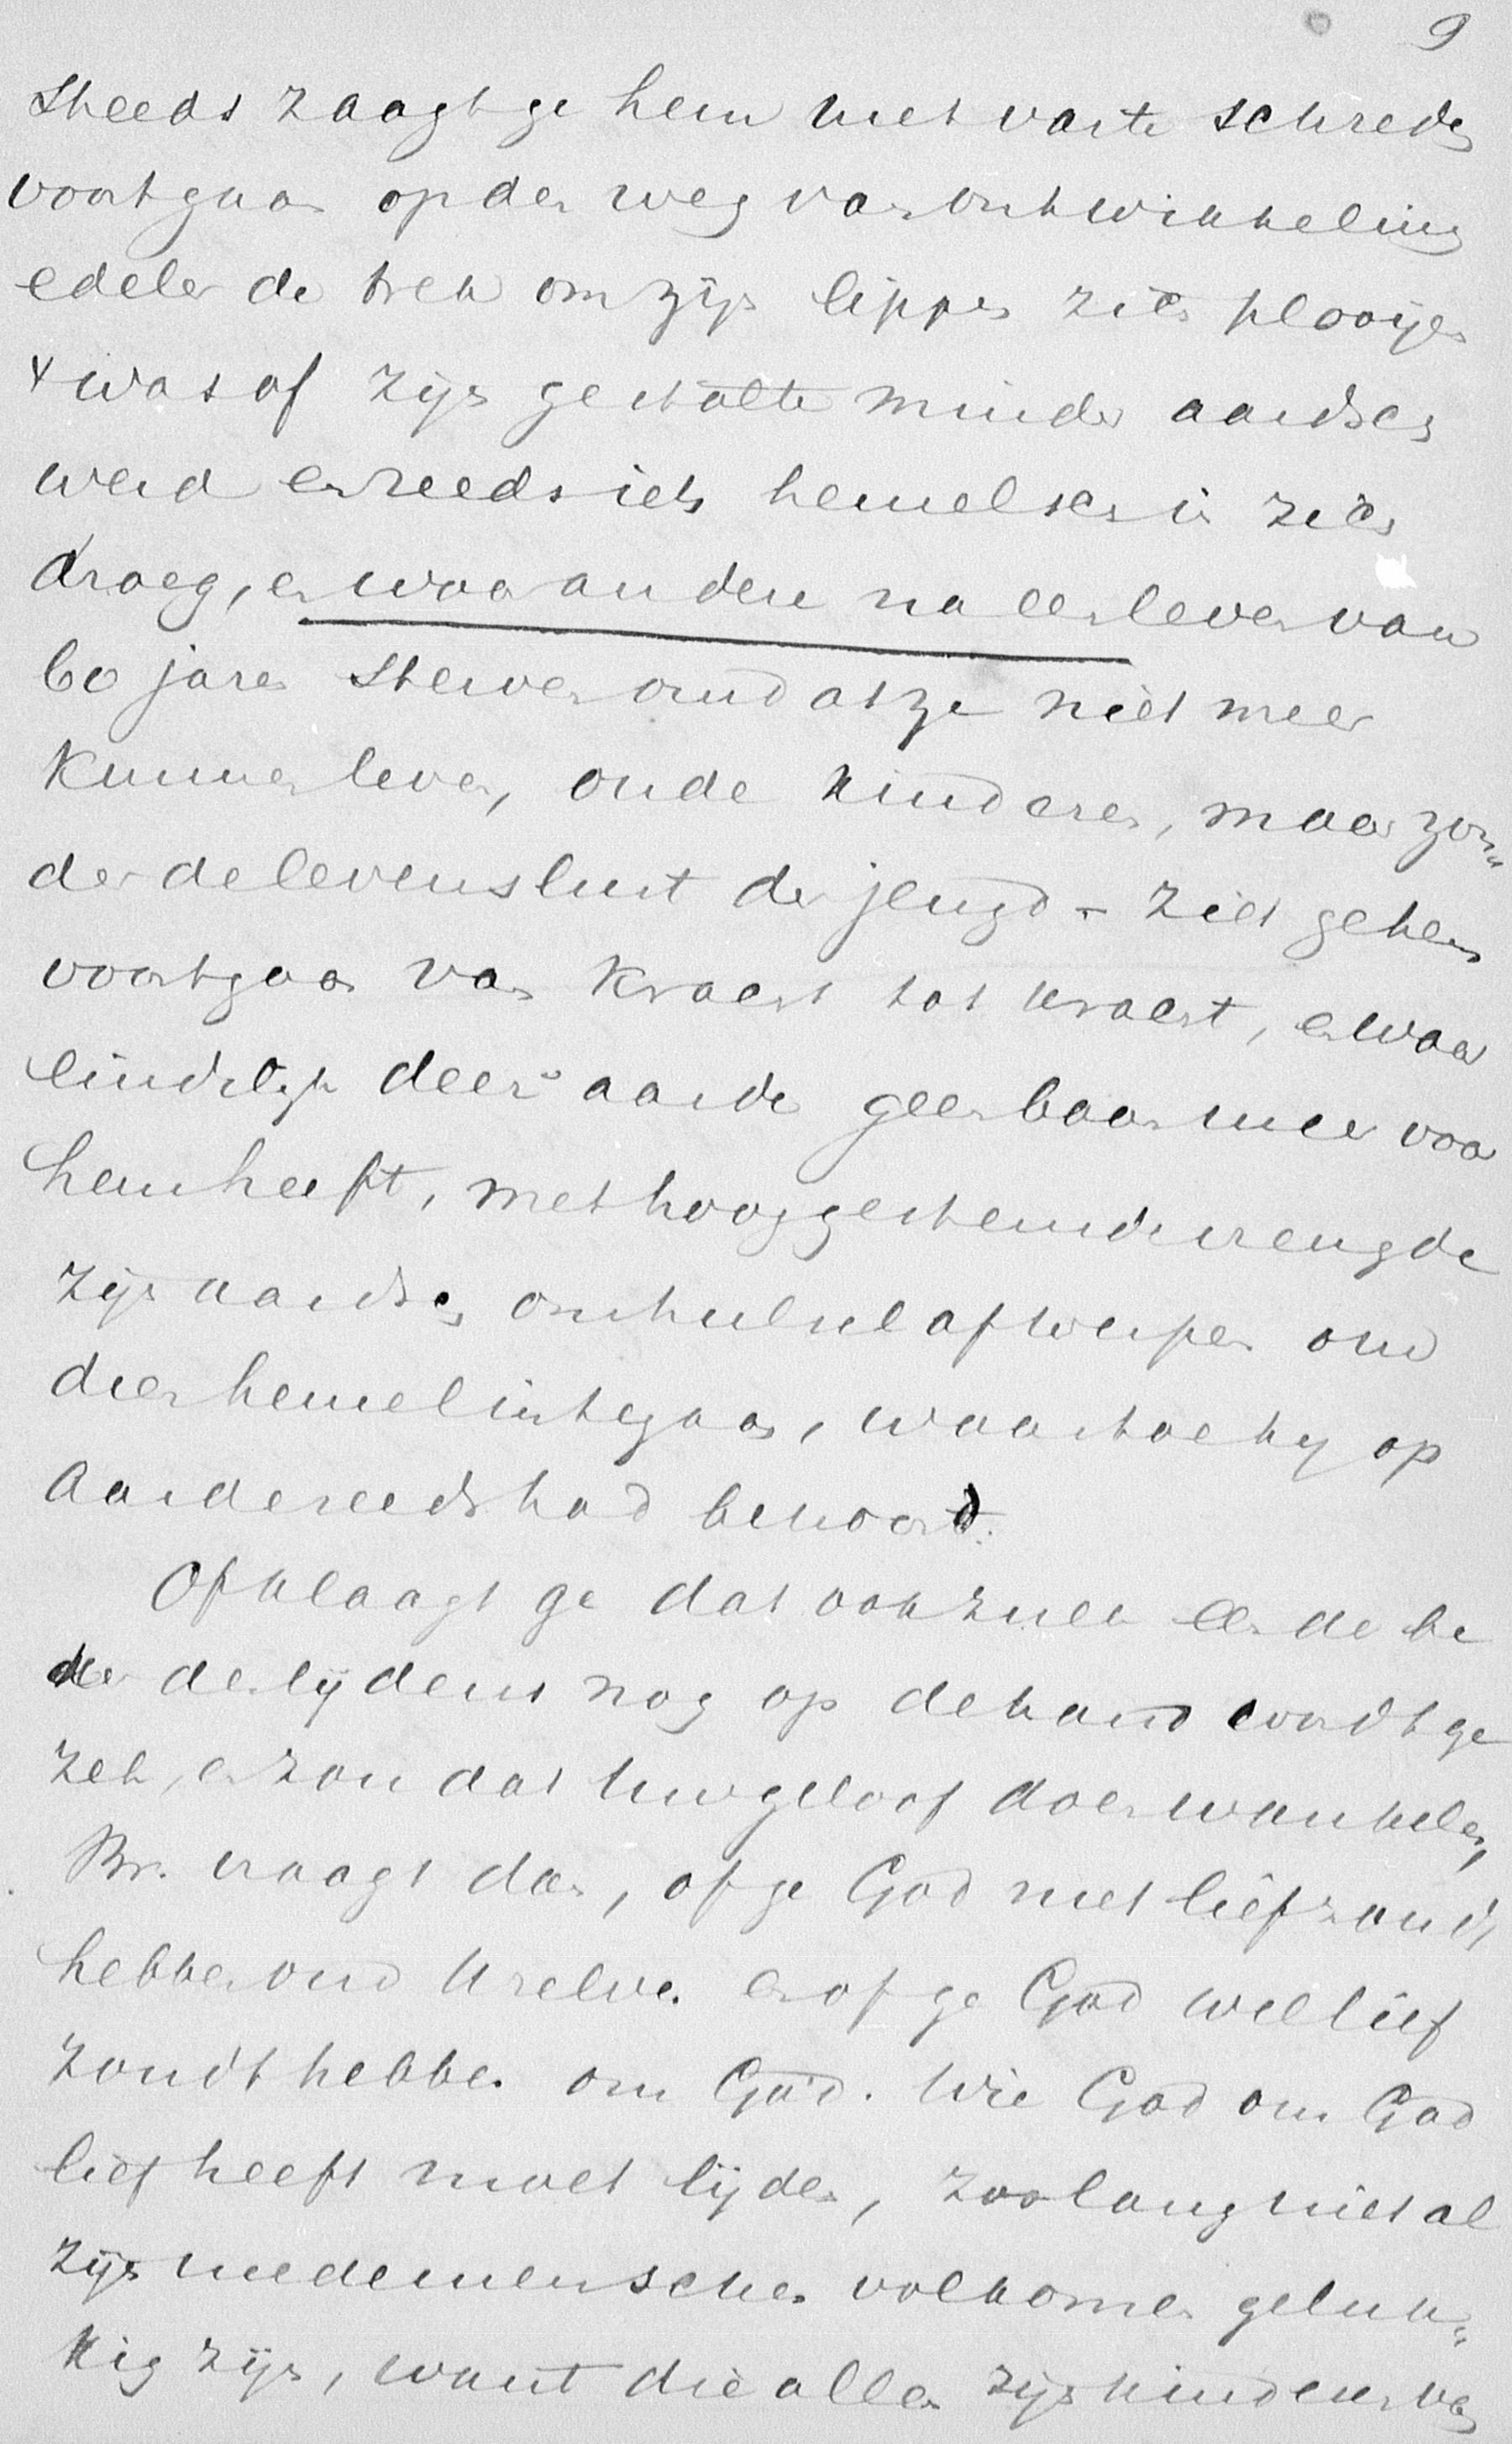 9
Steeds zaagt ge hem met vaste schreden
voortgaan op den weg van ontwikkeling
edeler de trek om zijn lippen zich plooijen
't was of zijn gestalte minder aardsch
werd en reeds iets hemelsch in zich
droeg, en waar andere na een leven van
60 jaren sterven omdat ze niet meer
kunnen leven, oude kinderen, maar zon„
der de levenslust der jeugd - ziet ge hem
voortgaan van kracht tot kracht, en waar
eindelijk deez' aarde geen baan meer voor
hem heeft, met hooggestemde vreugde
zijn aardsch omhulsel afwerpen om
dien hemel in te gaan, waartoe hij op
Aarde reeds had behoord.
Of klaagt ge dat ook zulk een de be
ker des lijdens nog op de hand wordt ge
zet, en zou dat Uw geloof doen wankelen,
Br. vraagt dan, of ge God niet lief zoudt
hebben om U zelve. en of ge God wel lief
zoudt hebben om God. Wie God om God
lief heeft moet lijden, zoolang niet al
zijn medemenschen volkomen geluk„
kig zijn, want die allen zijn kinderen van